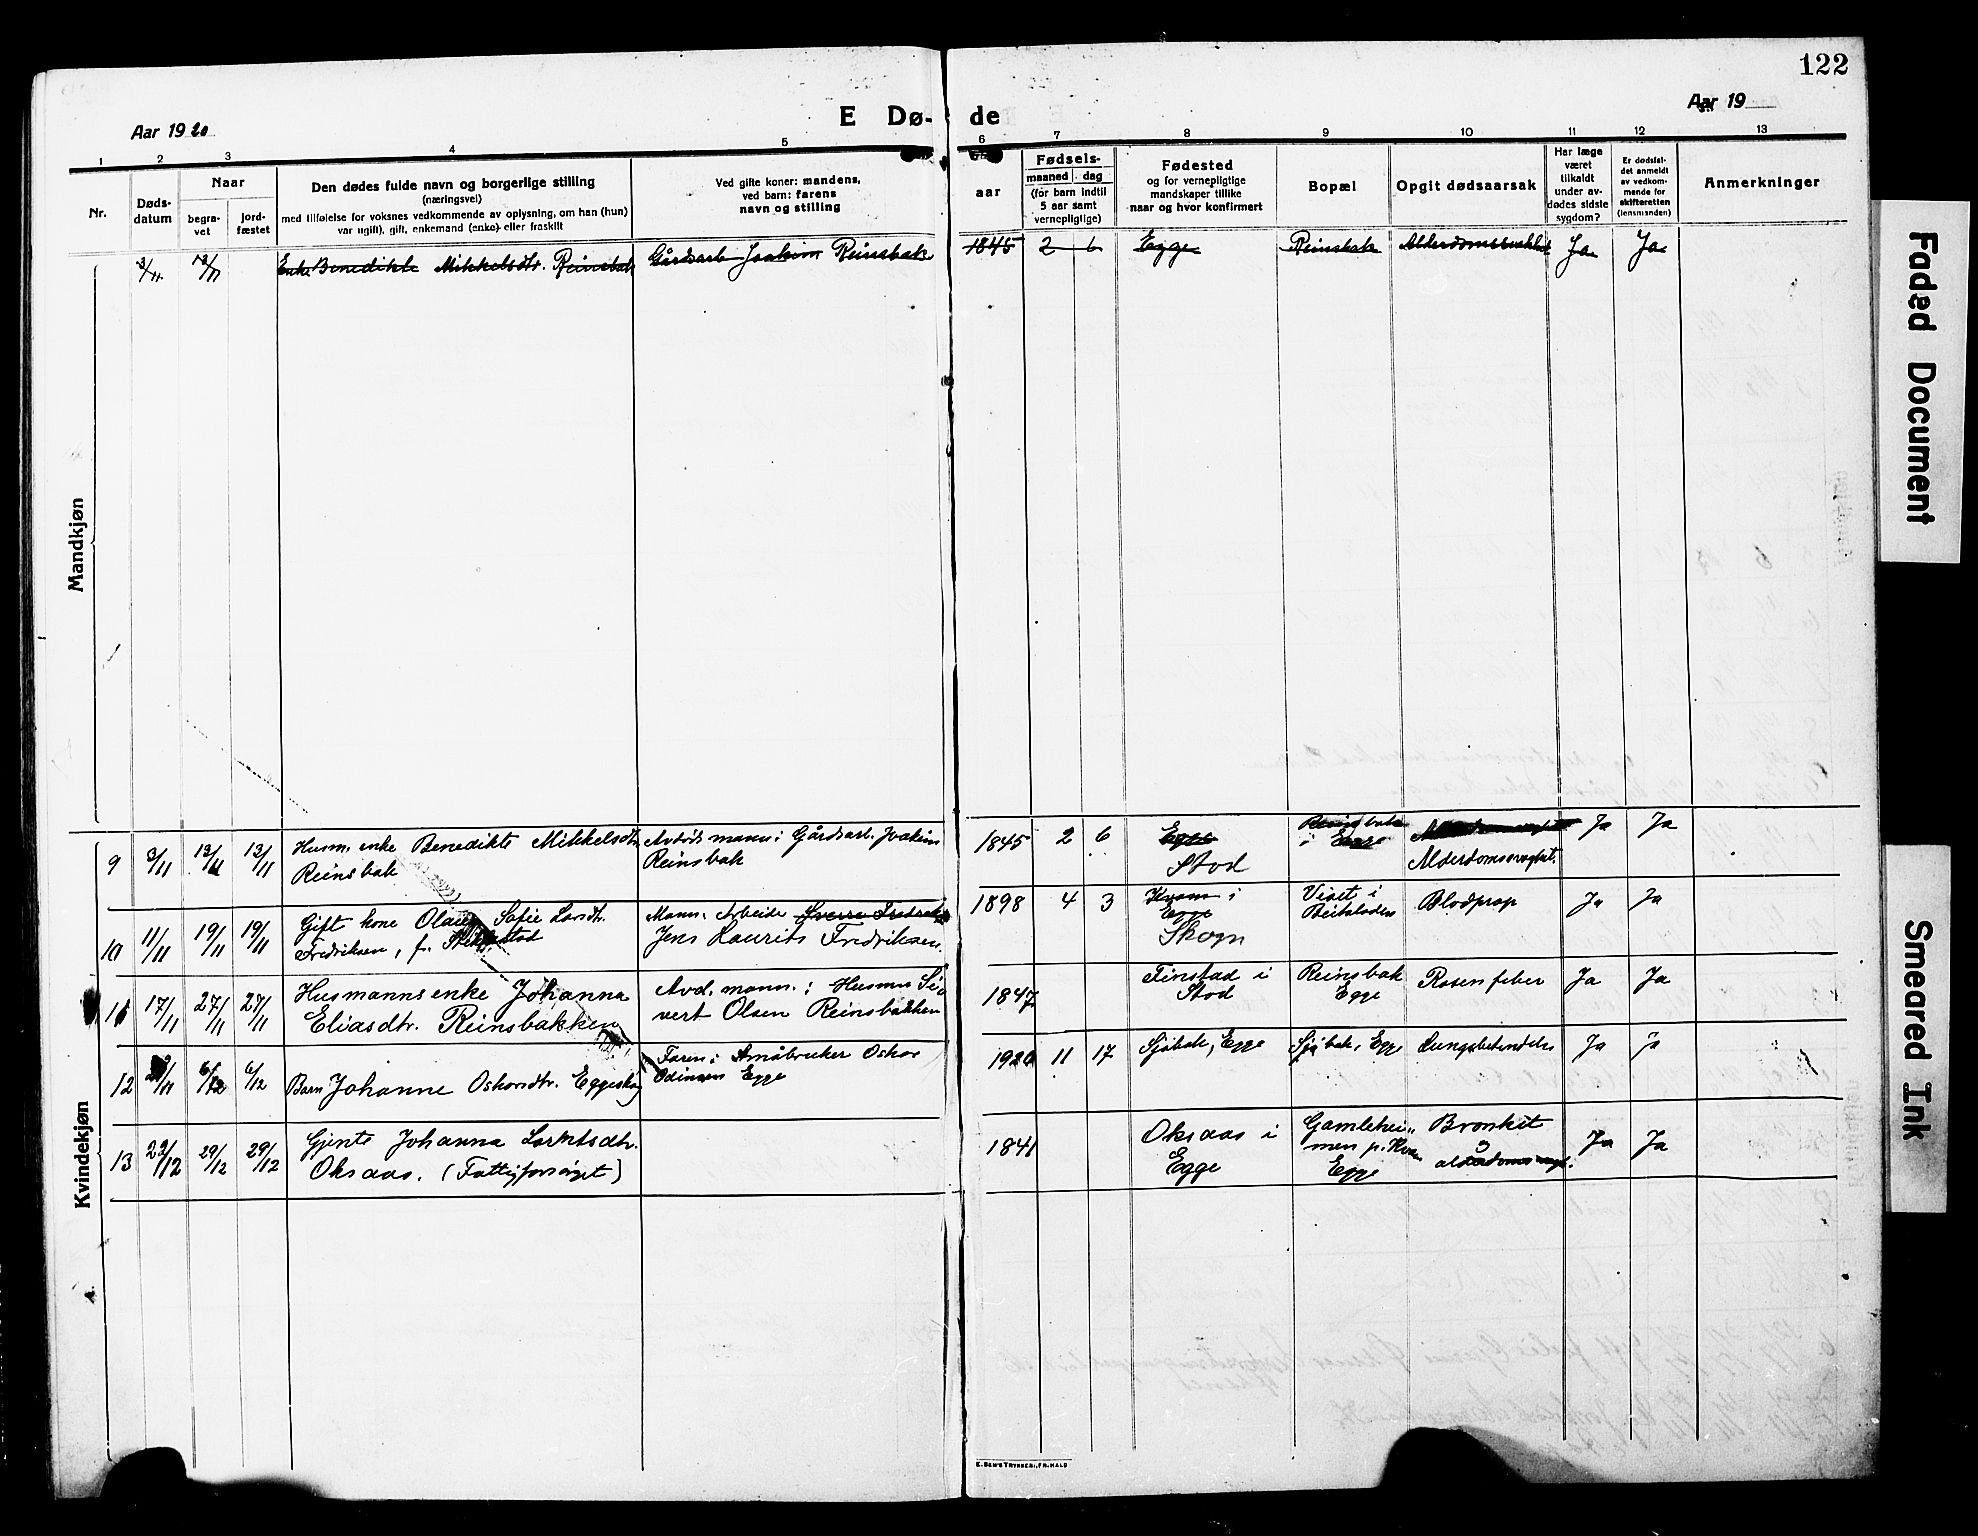 122
E Dø- de
Aar 19 20
Aar 19
1 2 3 4 5 6 7 8 9 10 11 12 13
Nr.
Døds-
datum
Naar
begra-
vet
jord-
fæstet
Den dødes fulde navn og borgerlige stilling
(næringsvei)
med tilføielse for voksnes vedkommende av oplysning, om han (hun)
var ugift), gift, enkemand (enke) eller fraskilt
Ved gifte koner: mandens,
ved barn: farens
navn og stilling
aar
Fødsels-
maaned dag
(for barn indtil
5 aar samt
vernepligtige)
Fødested
og for vernepligtige
mandskaper tillike
naar og hvor konfirmert
Bopæl
Opgit dødsaarsak
Har læge
været
tilkaldt
under av-
dødes sidste
sygdom?
Er dødsfal-
det anmeldt
av vedkom-
mende for
skifteretten
(lensmanden)
Anmerkninger
Mandkjøn
3/11 13/11 Enke Benedikte Mikkelsdtr. Reinsbak Gårdsarb. Joakim Reinsbak 1845 2 6 Egge Reinsbak Ja Ja
Kvindekjøn
9 3/11 13/11 13/11 Husm. enke Benedikte Mikkelsdtr.
Reinsbak
Avdøds mann: Gårdsarb. Joakim
Reinsbak
1845 2 6
Egge
Stod
Reinsbak
i Egge
Alderdomssvaghet.
Ja Ja
10 11/11 19/11 19/11 Gift kone Sofie Larsdtr.
Fredriksen, f.
Mann: Arbeider Sverre Fredriksen
Jens Laurits Fredriksen.
1898 4 3
Kvam i
Egge
Skogn
Vist i
Beitstaden
Blodprop
Ja Ja
11 17/11 27/11 27/11 Husmannsenke Johanna
Eliasdtr. Reinsbakken
Avd. mann.: Husmn Si-
vert Olsen Reinsbakken
1847
Finstad i
Stod
Reinsbak
Egge
Rosenfeber
Ja Ja
12 6/12 6/12 Barn Johanne Oskarsdtr. Eggeskog
Faren: Småbruker Oskar
Odinsen Egge
1920 11 17
Sjøbak, Egge
Sjøbak, Egge
Lungebetendelse
Ja Ja
13 22/12 29/12 29/12 Gjente Johanna Lorntsdtr.
Oksaas. (Fattigforsørget)
1841
Oksaas i
Egge
Gamlehei-
men p.
Egge
Bronkit
Ja Ja
Faded Document
Smeared Ink